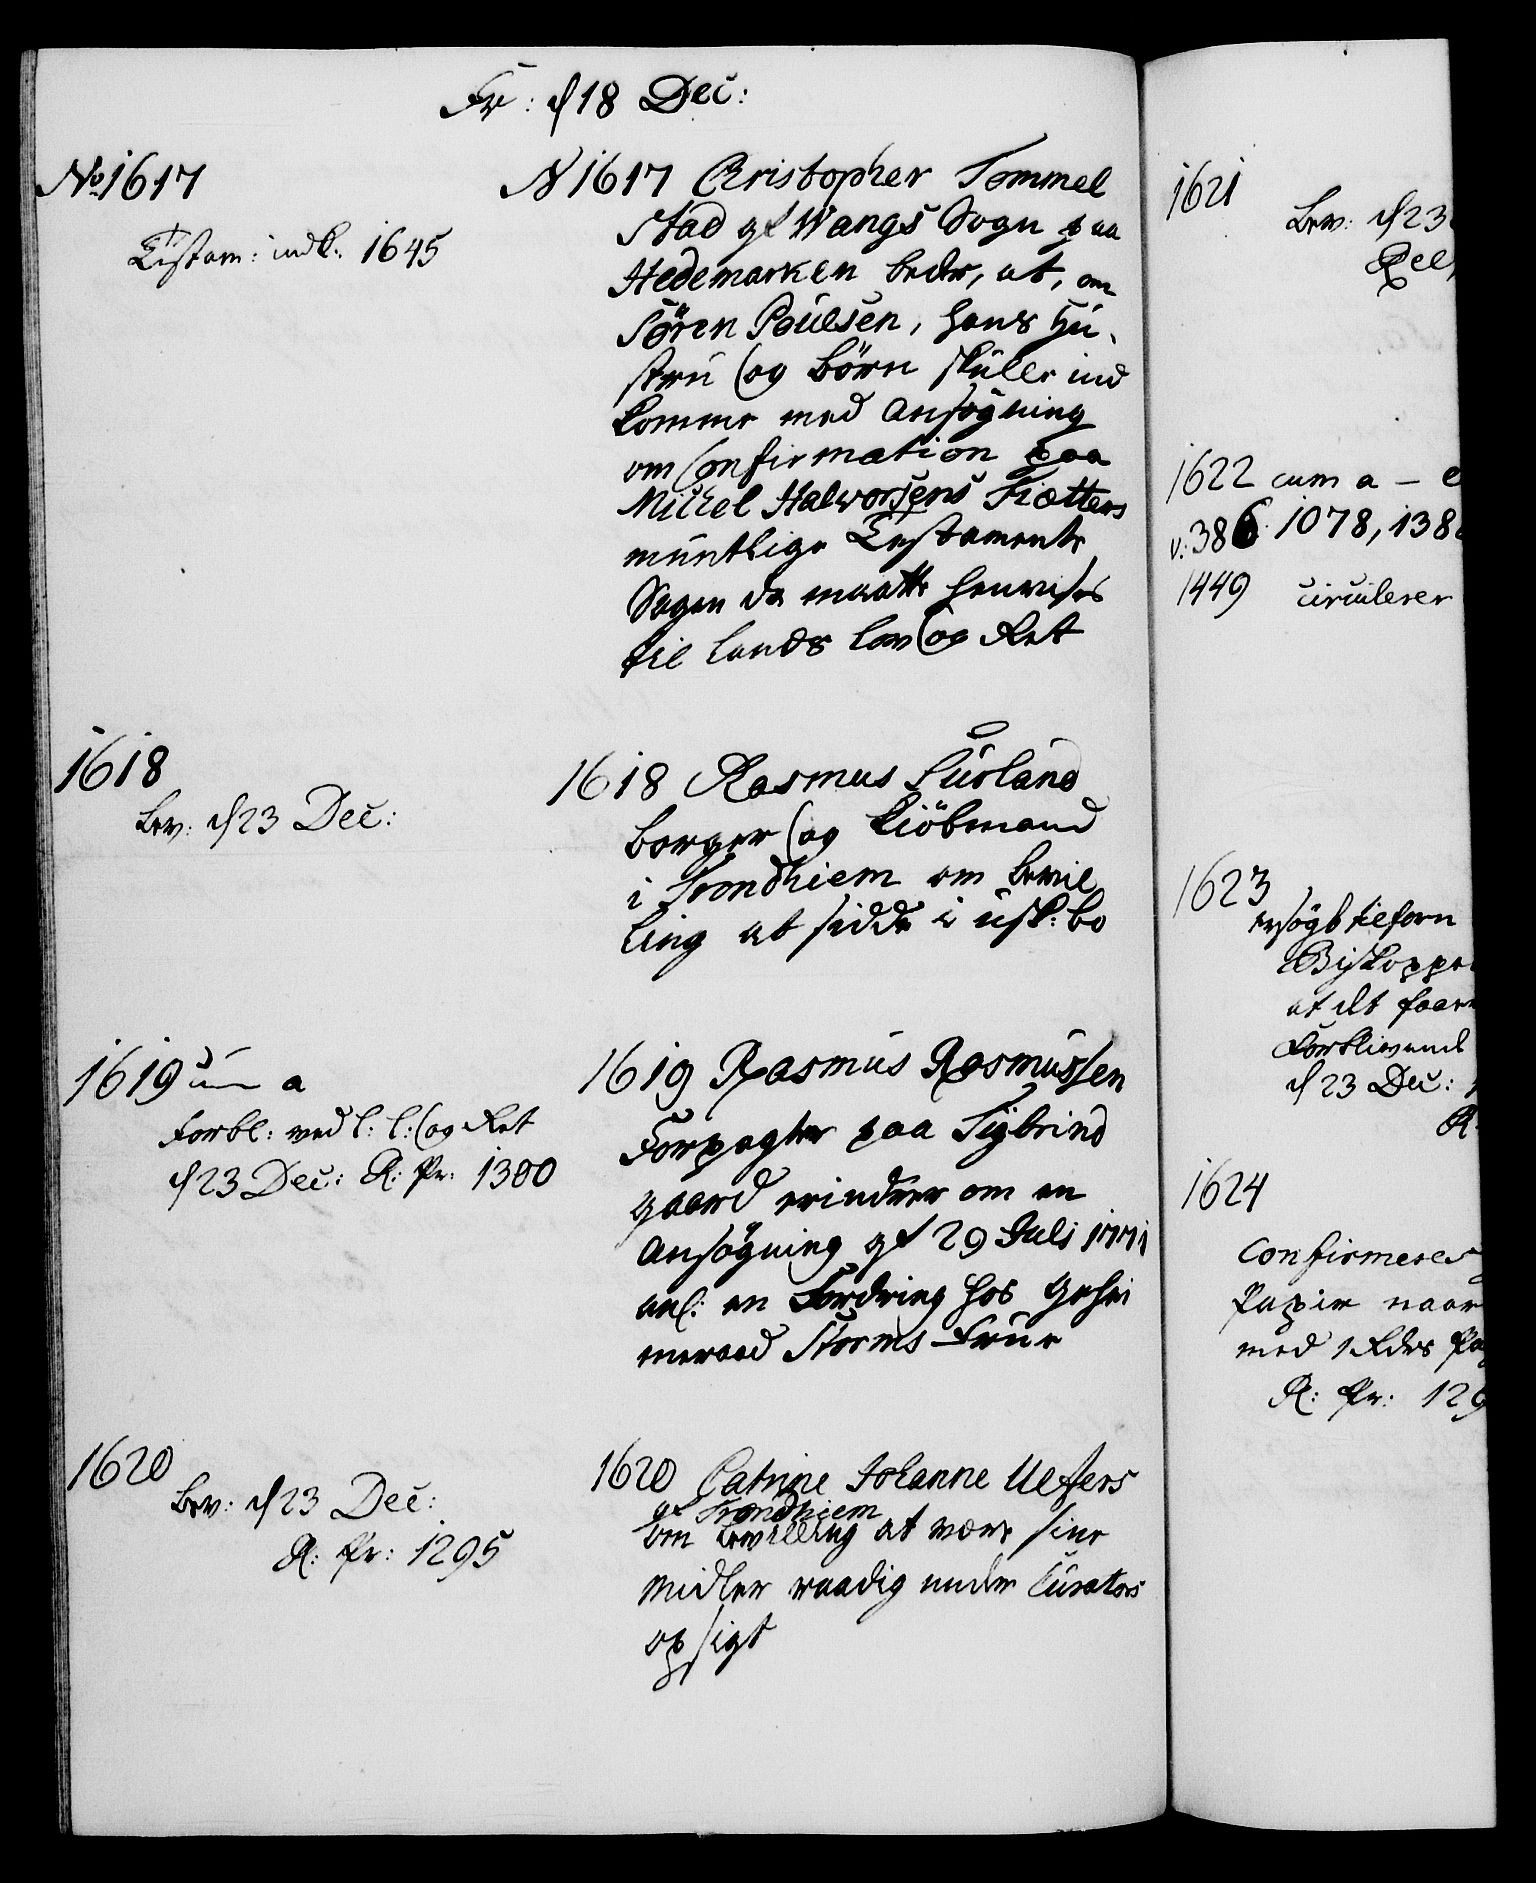 Fr: d 18 Dec:
No 1617
Testam: indk: 1645
N 1617 Christopher Tommel
Stad af Wangs Sogn paa
Hedemarken beder, at, om
Sören Poulsen, hans Hu-
stru og börn skulle ind
komme med Ansögning
om Confirmation paa
Michel Halworsens Fiætters
muntlige Testamente
Sagen da maatte henvises
til Lands Lov og Ret
1618
Bev: d 23 Dec:
1618 Rasmus Lusland
borger og Kiöbmand
i Trondhiem om bevil
ling at sidde i usk: bo
1619 cum a
Forbl: ved l: l: og Ret
d 23 Dec: R: Pr: 1380
1619 Rasmus Rasmussen
Forpagter paa Sigbrind
gaard erindrer om en
Ansögning af 29 Juli 1771
anl: en Fordring hos Gehei
meraad Storms Frue
1620
Bev: d 23 Dec:
R: Pr: 1295
1620 Catrine Johanne Ulefers
af Trondhiem
om bevilling at være sine
Midler raadig under Curators
opsigt
1621
Bev: d 23
1622 cum a - e
v: 386. 1078, 138
1449 circulerer
1623
ersögt tilforn
Biskoppe
at dt faar
d 23 Dec:
R.
1624
Confirmeres
Papir naar
med 1 Rdrs Pa
R: Pr: 129